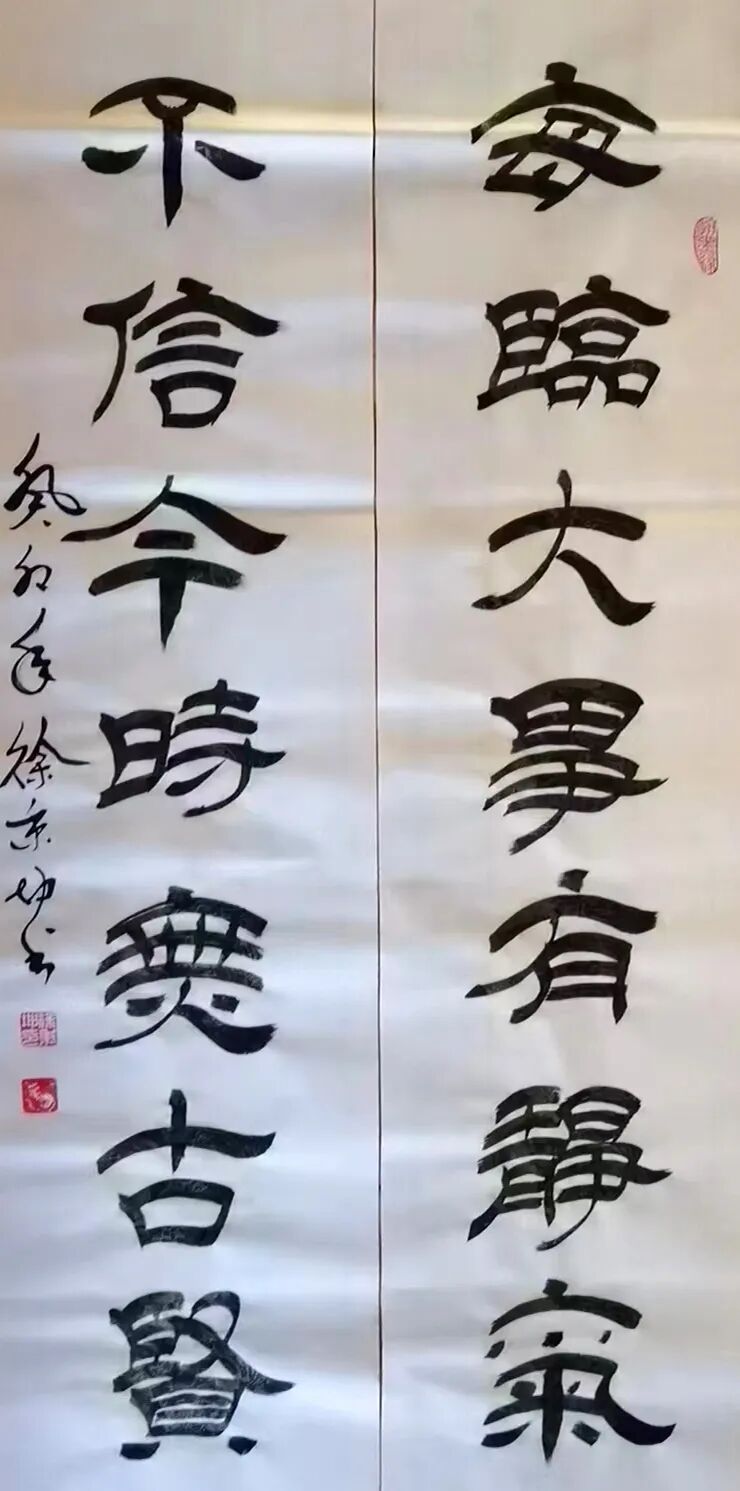 每臨大事有靜氣
不信今時無古賢
癸卯年徐京坤书